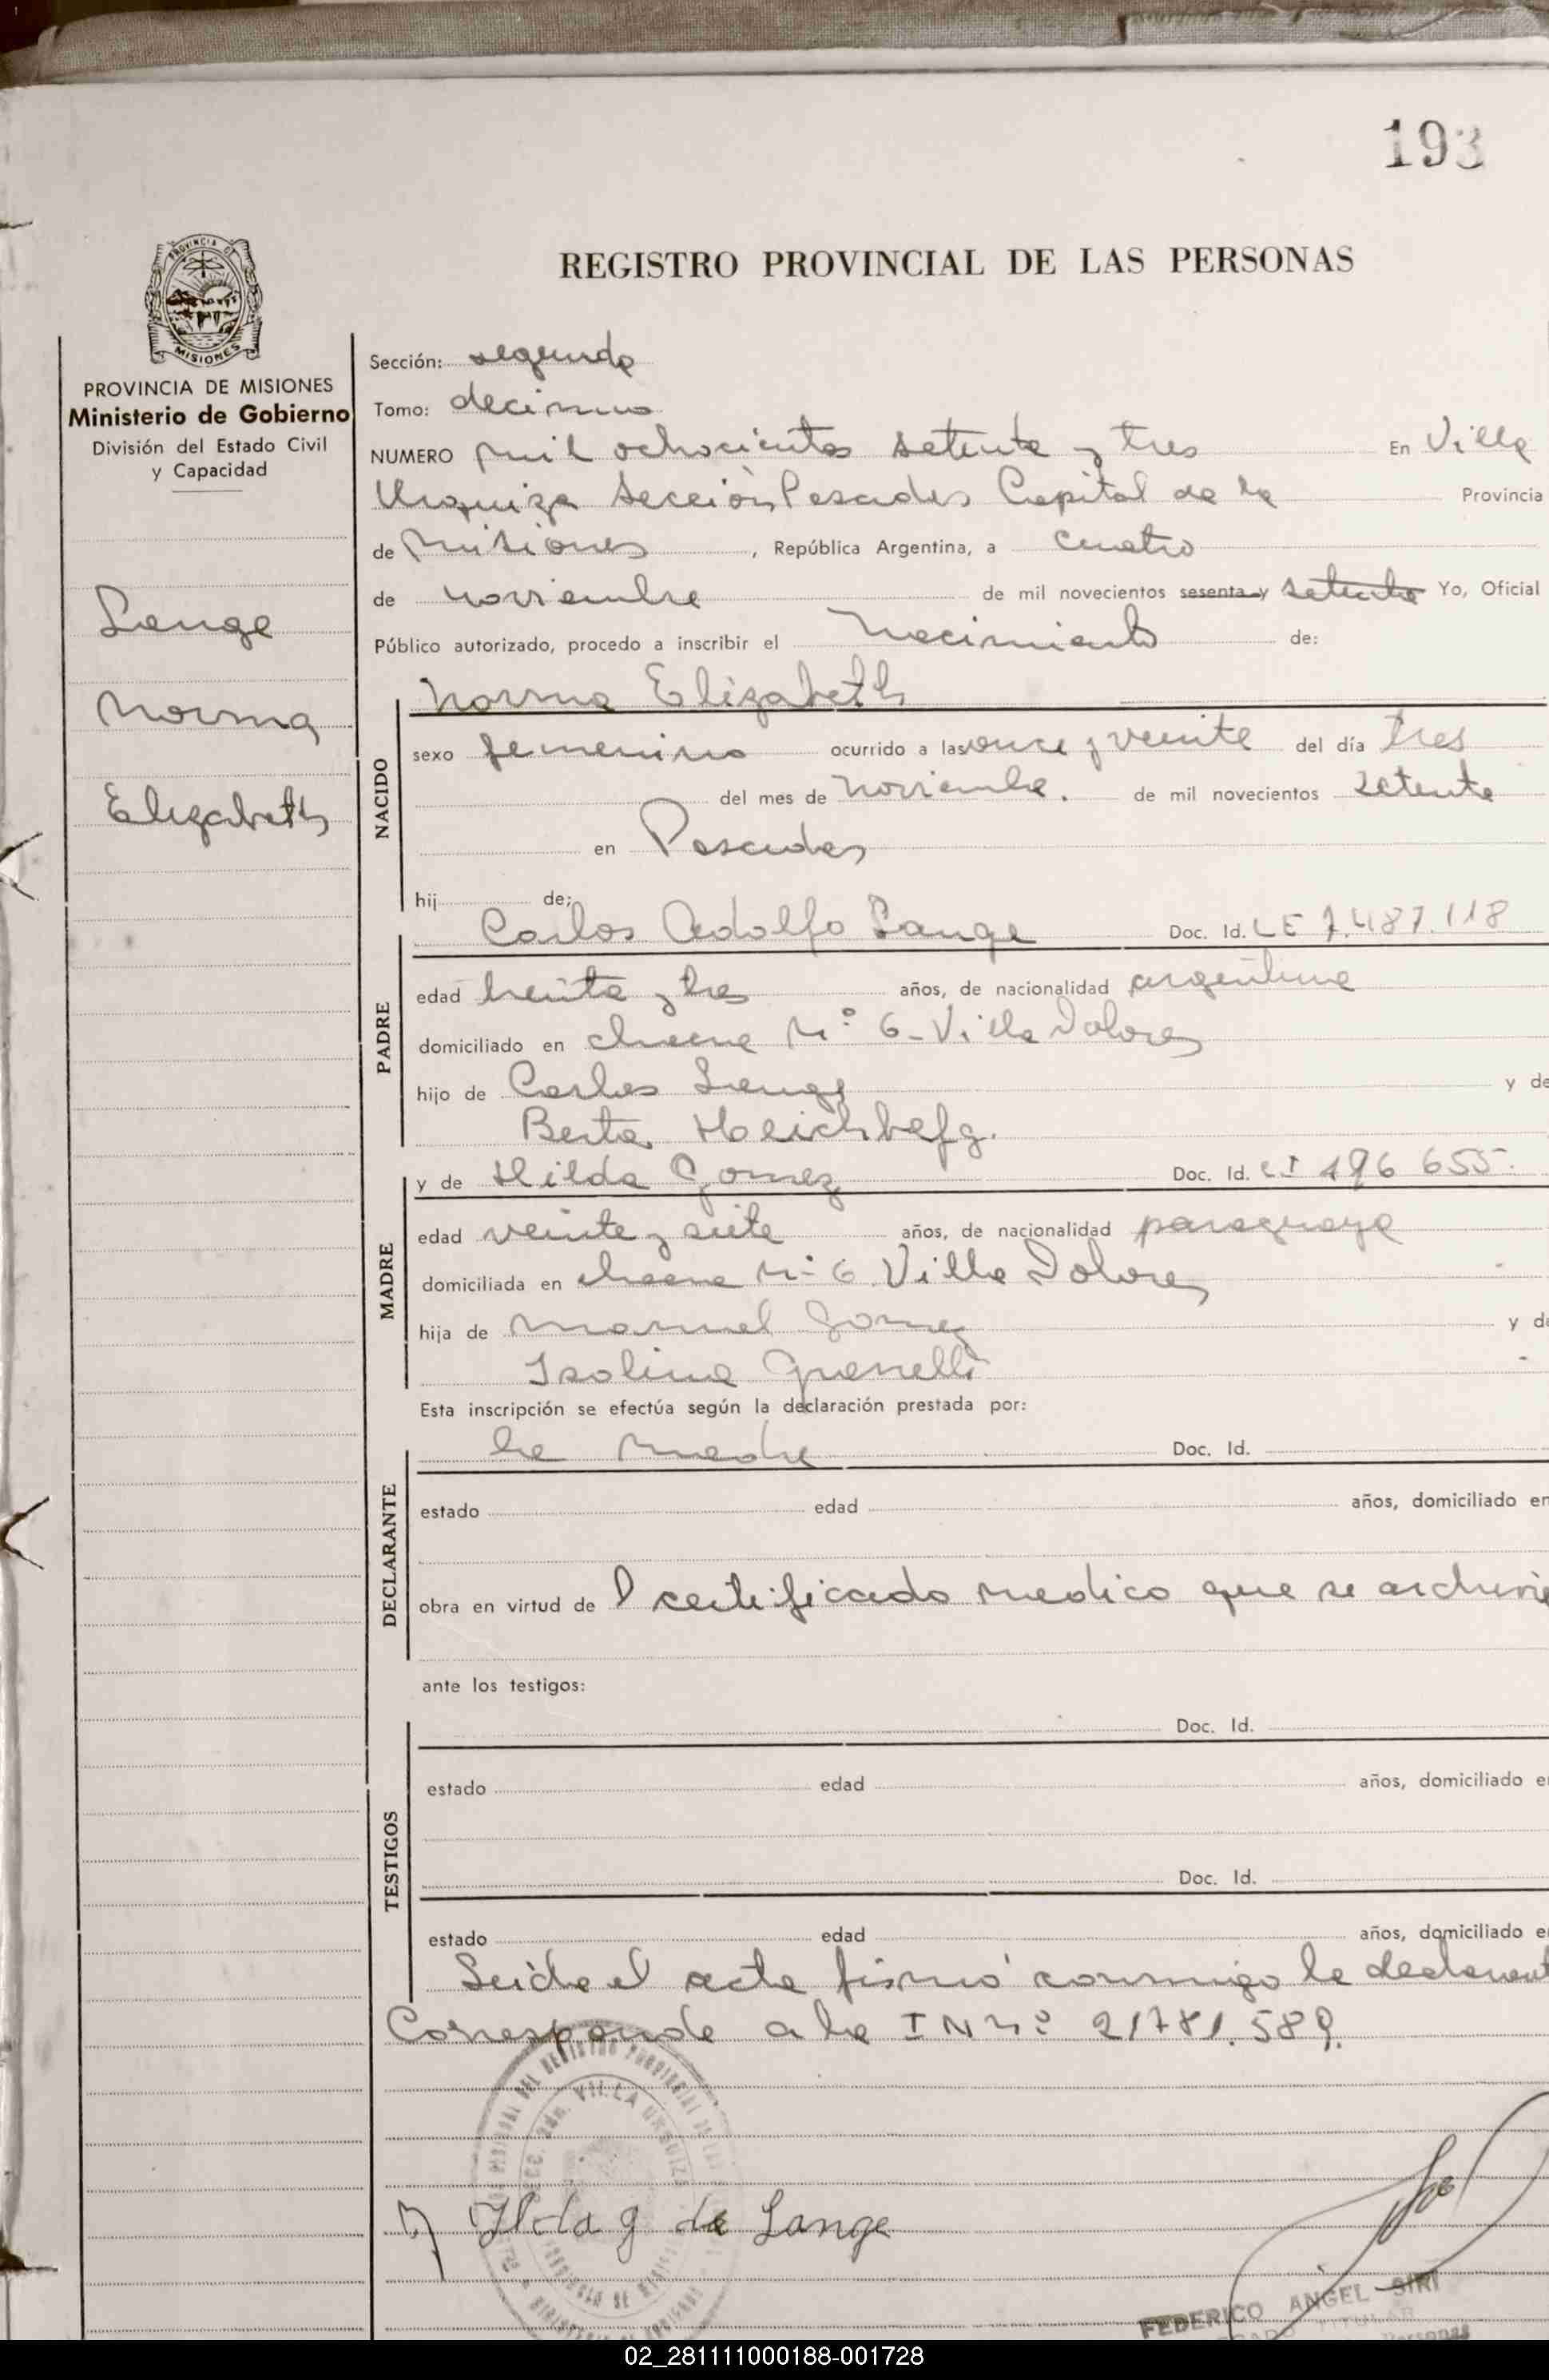 193
REGISTRO PROVINCIAL DE LAS PERSONAS
PROVINCIA DE MISIONES
PROVINCIA DE MISIONES
Ministerio de Gobierno
División del Estado Civil
y Capacidad
Lange
Norma
Elizabeth
Sección: segunda
Tomo: decimo
NUMERO mil ochocientos setenta y tres En Villa
Urquiza Sección Posadas Capital de la Provincia
de Misiones, República Argentina, a cuatro
de noviembre de mil novecientos sesenta y setenta Yo, Oficial
Público autorizado, procedo a inscribir el Nacimiento de:
NACIDO
Norma Elizabeth
sexo femenino ocurrido a las once y veinte del día tres
del mes de noviembre. de mil novecientos setenta
en Posadas
hij de;
PADRE
Carlos Adolfo Lange Doc. Id. LE 7.487.118
edad treinta y tres años, de nacionalidad argentina
domiciliado en chacra N° 6 - Villa Dolores
hijo de Carlos Lange y de
Berta
MADRE
y de Hilda Gomez Doc. Id. CI 496 655.
edad veinte y siete años, de nacionalidad paraguaya
domiciliada en chacra N° 6 Villa Dolores
hija de Manuel Gomez y de
Isolina
Esta inscripción se efectúa según la declaración prestada por:
DECLARANTE
la madre Doc. Id.
estado edad años, domiciliado en
obra en virtud de l certificado medico que se archiva
ante los testigos:
TESTIGOS
Doc. Id.
estado edad años, domiciliado en
Doc. Id.
estado edad años, domiciliado en
Leida el acta firmó conmigo la declarant
Corresponde a la IN N° 21781.589.
VILLA URQUIZA
Ilda g de Lange
FEDERICO ANGEL SIRI
TITULAR
Personas
02_281111000188-001728